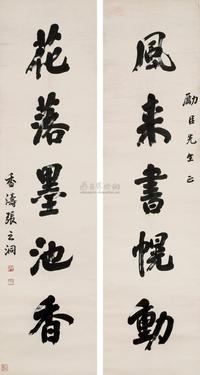 風来書幌動
勵臣先生正
花落墨池香
香濤張之洞